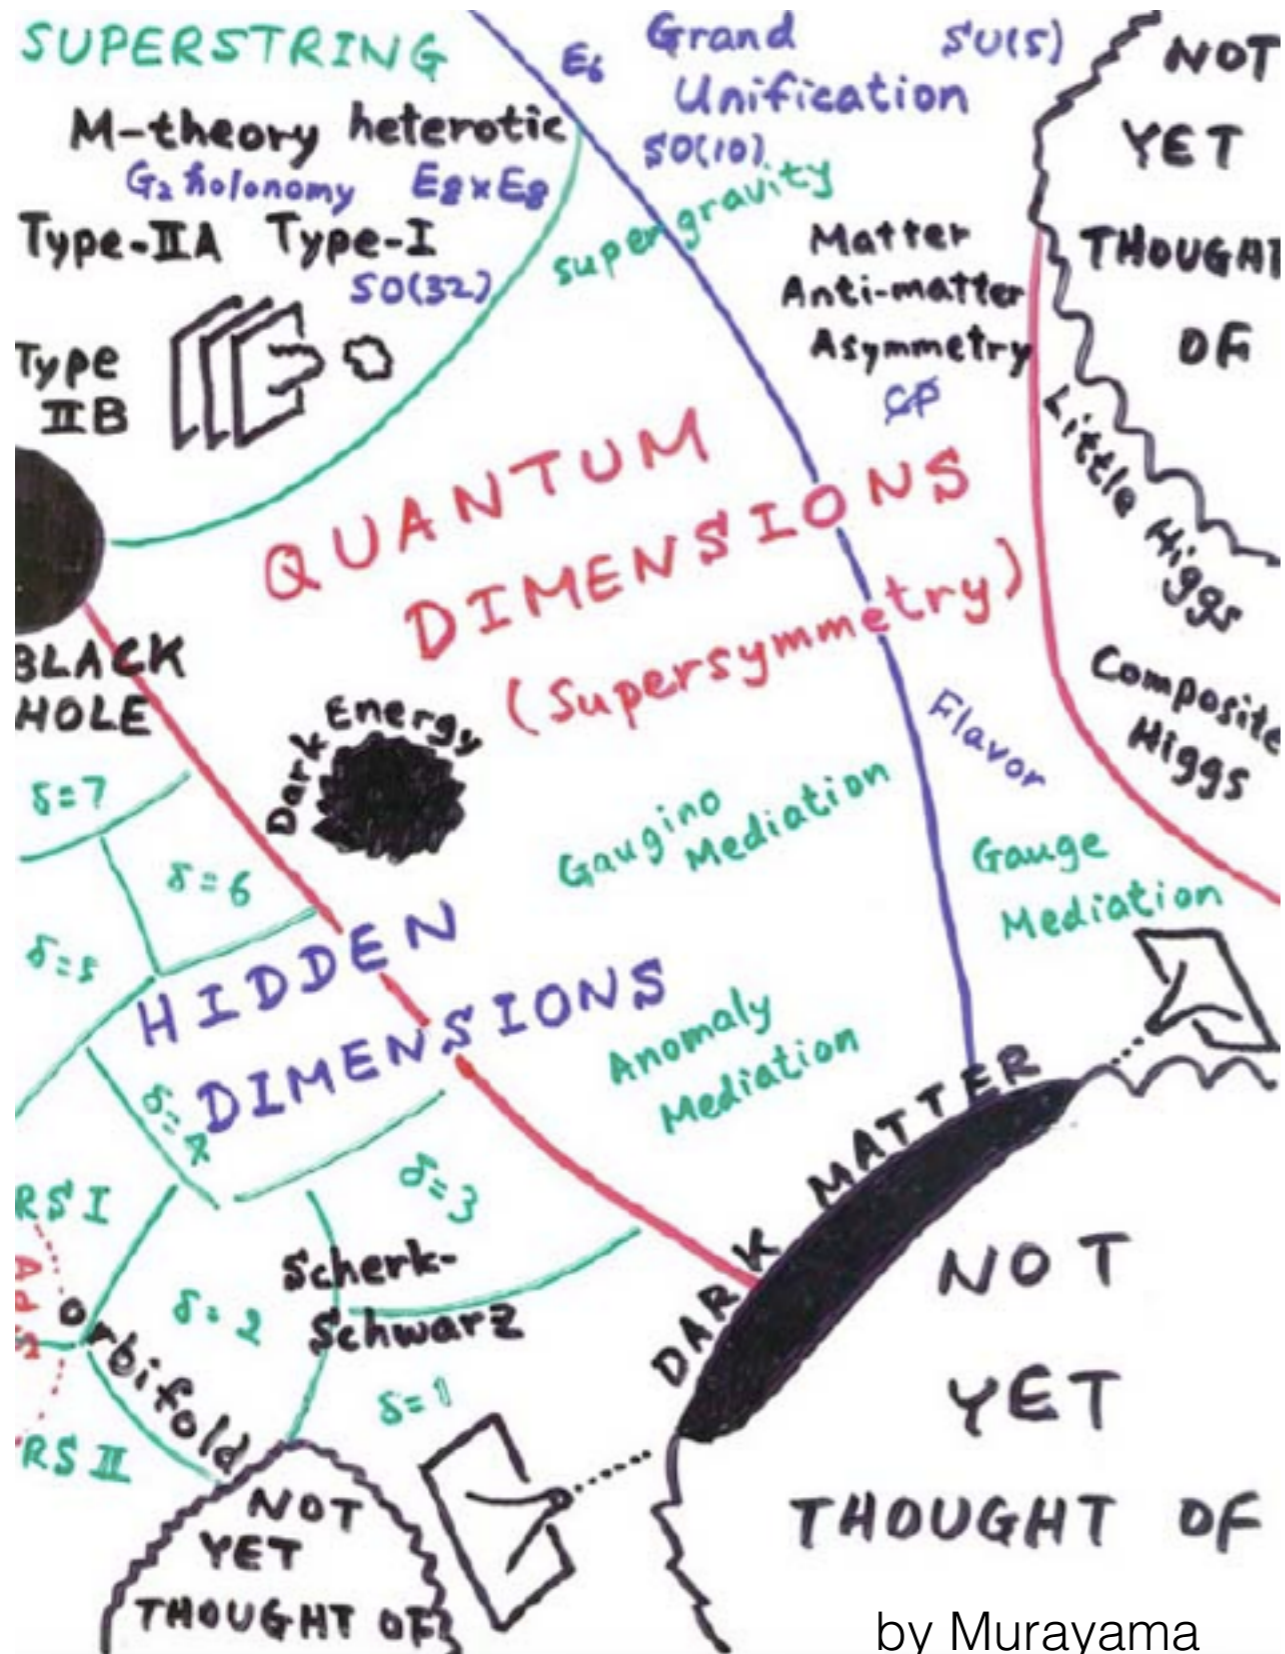 SUPERSTRING
M-theory heterotic
G₂ holonomy E8×E8
Type-IIA Type-I
SO(32)
Type
IIB
E₆
Grand
Unification
SU(5)
SO(10)
supergravity
Matter
Anti-matter
Asymmetry
CP
NOT
YET
THOUGHT
OF
Little Higgs
Composite
Higgs
QUANTUM
DIMENSIONS
(Supersymmetry)
BLACK
HOLE
Dark Energy
Flavor
Gaugino
Mediation
Gauge
Mediation
Anomaly
Mediation
δ=7
δ=6
δ=5
HIDDEN
DIMENSIONS
δ=4
δ=3
RS I
AdS
Orbifold
δ=2
Scherk-
Schwarz
δ=1
RS II
DARK MATTER
NOT
YET
THOUGHT OF
NOT
YET
THOUGHT OF
by Murayama